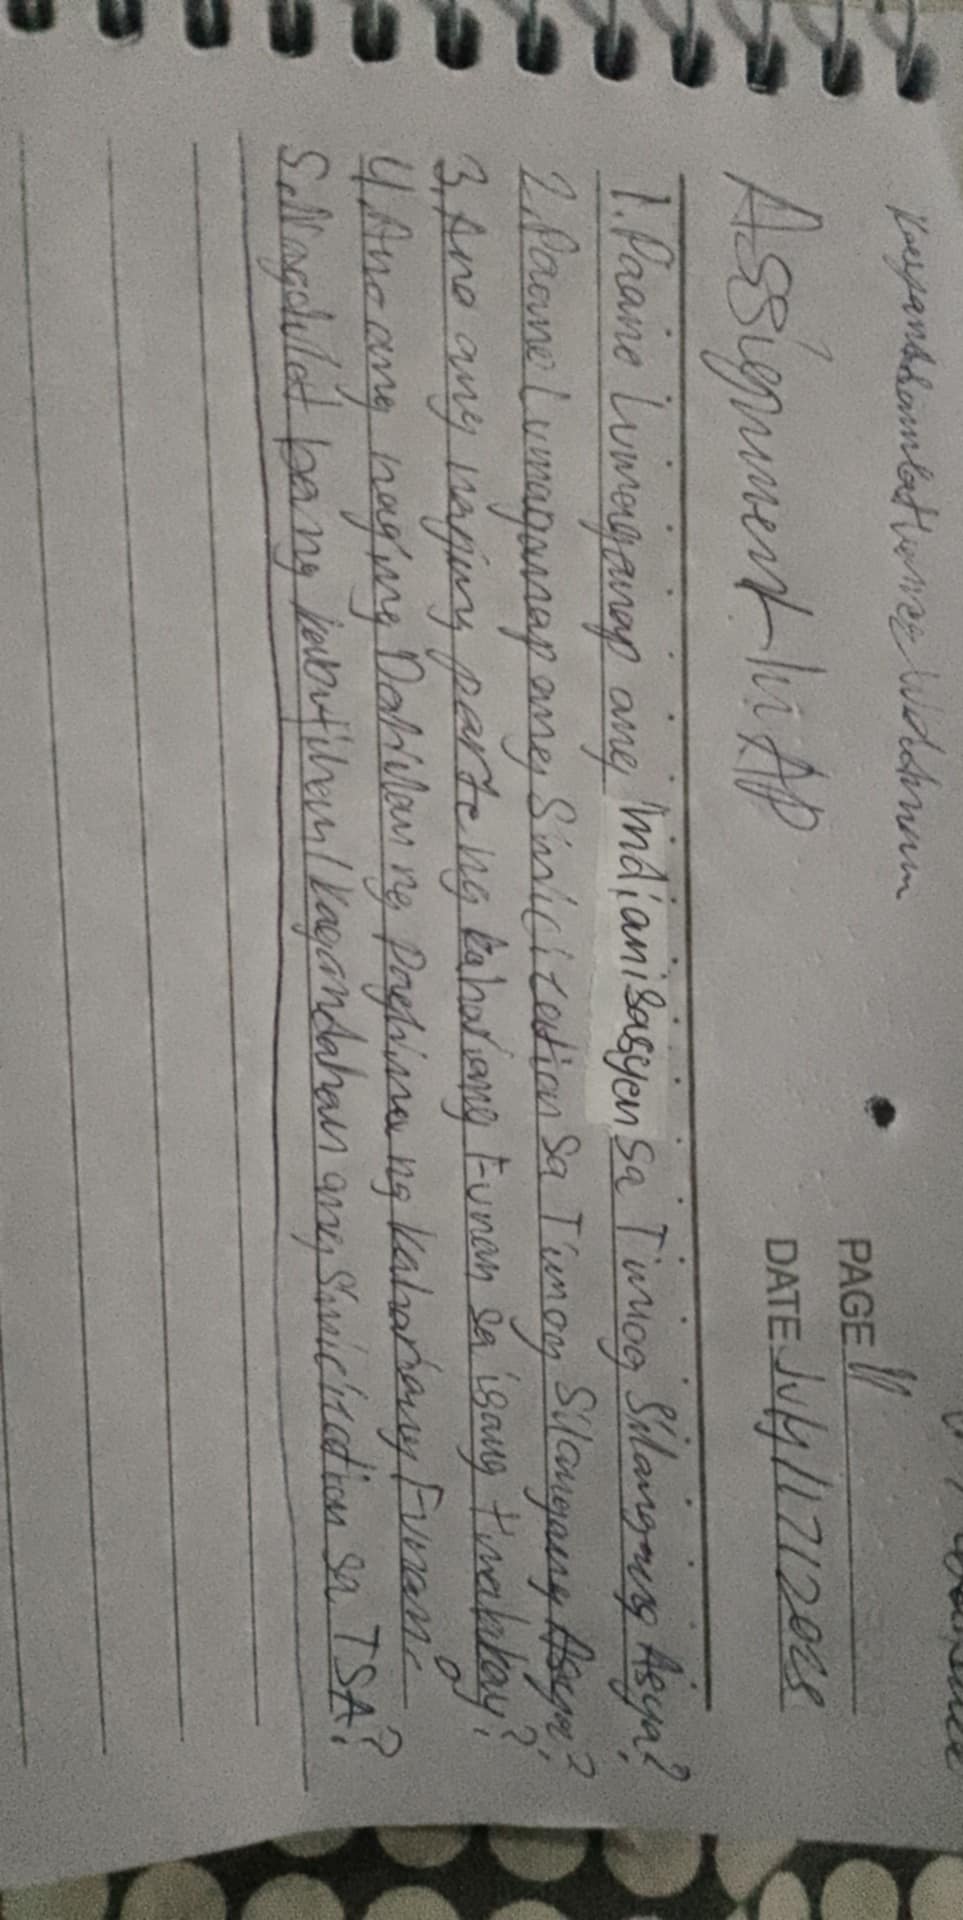 PAGE 11
DATE July 17 / 2025
Assignment in AP
1. Paano Lumaganap ang Indianisasyon sa Timog Silangang Asya?
2. Paano Lumaganap ang Sinicization sa Timog Silangang Asya?
3. Ano ang naging parte ng kahariang Funan sa isang tinalakay?
4. Ano ang naging Dahilan ng paghina ng kahariang Funan?
5. Nagdulot bang kabutihan/kagandahan ang Sinicization sa TSA?